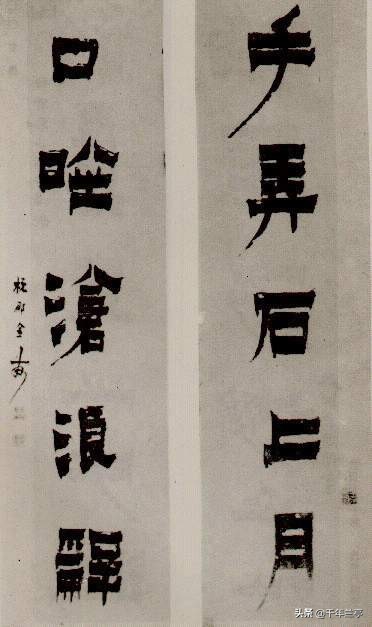 手弄石上月
口滄浪辭
杭郡金農
头条 @千年兰亭